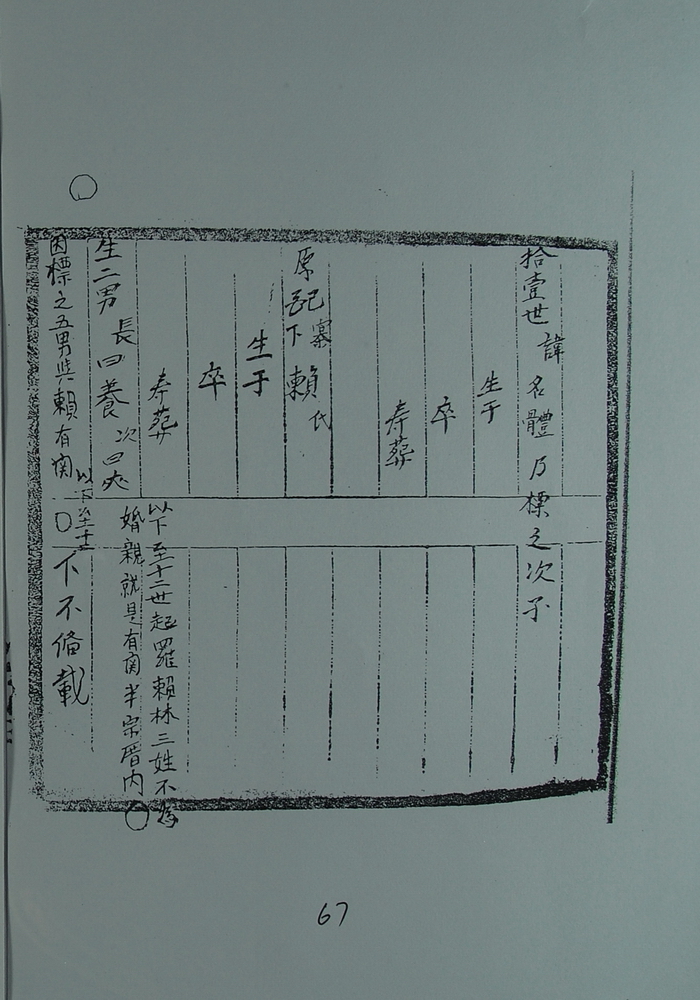 拾壹世 諱名體乃標之次子
生于
卒
寿葬
原配下寨賴氏
生于
卒
寿葬
以下至十二世起羅賴林三姓不為
婚親就是有関半宗厝内
生二男 長曰養 次曰
以下至十三
因標之五男與賴有関 下不俻載
67